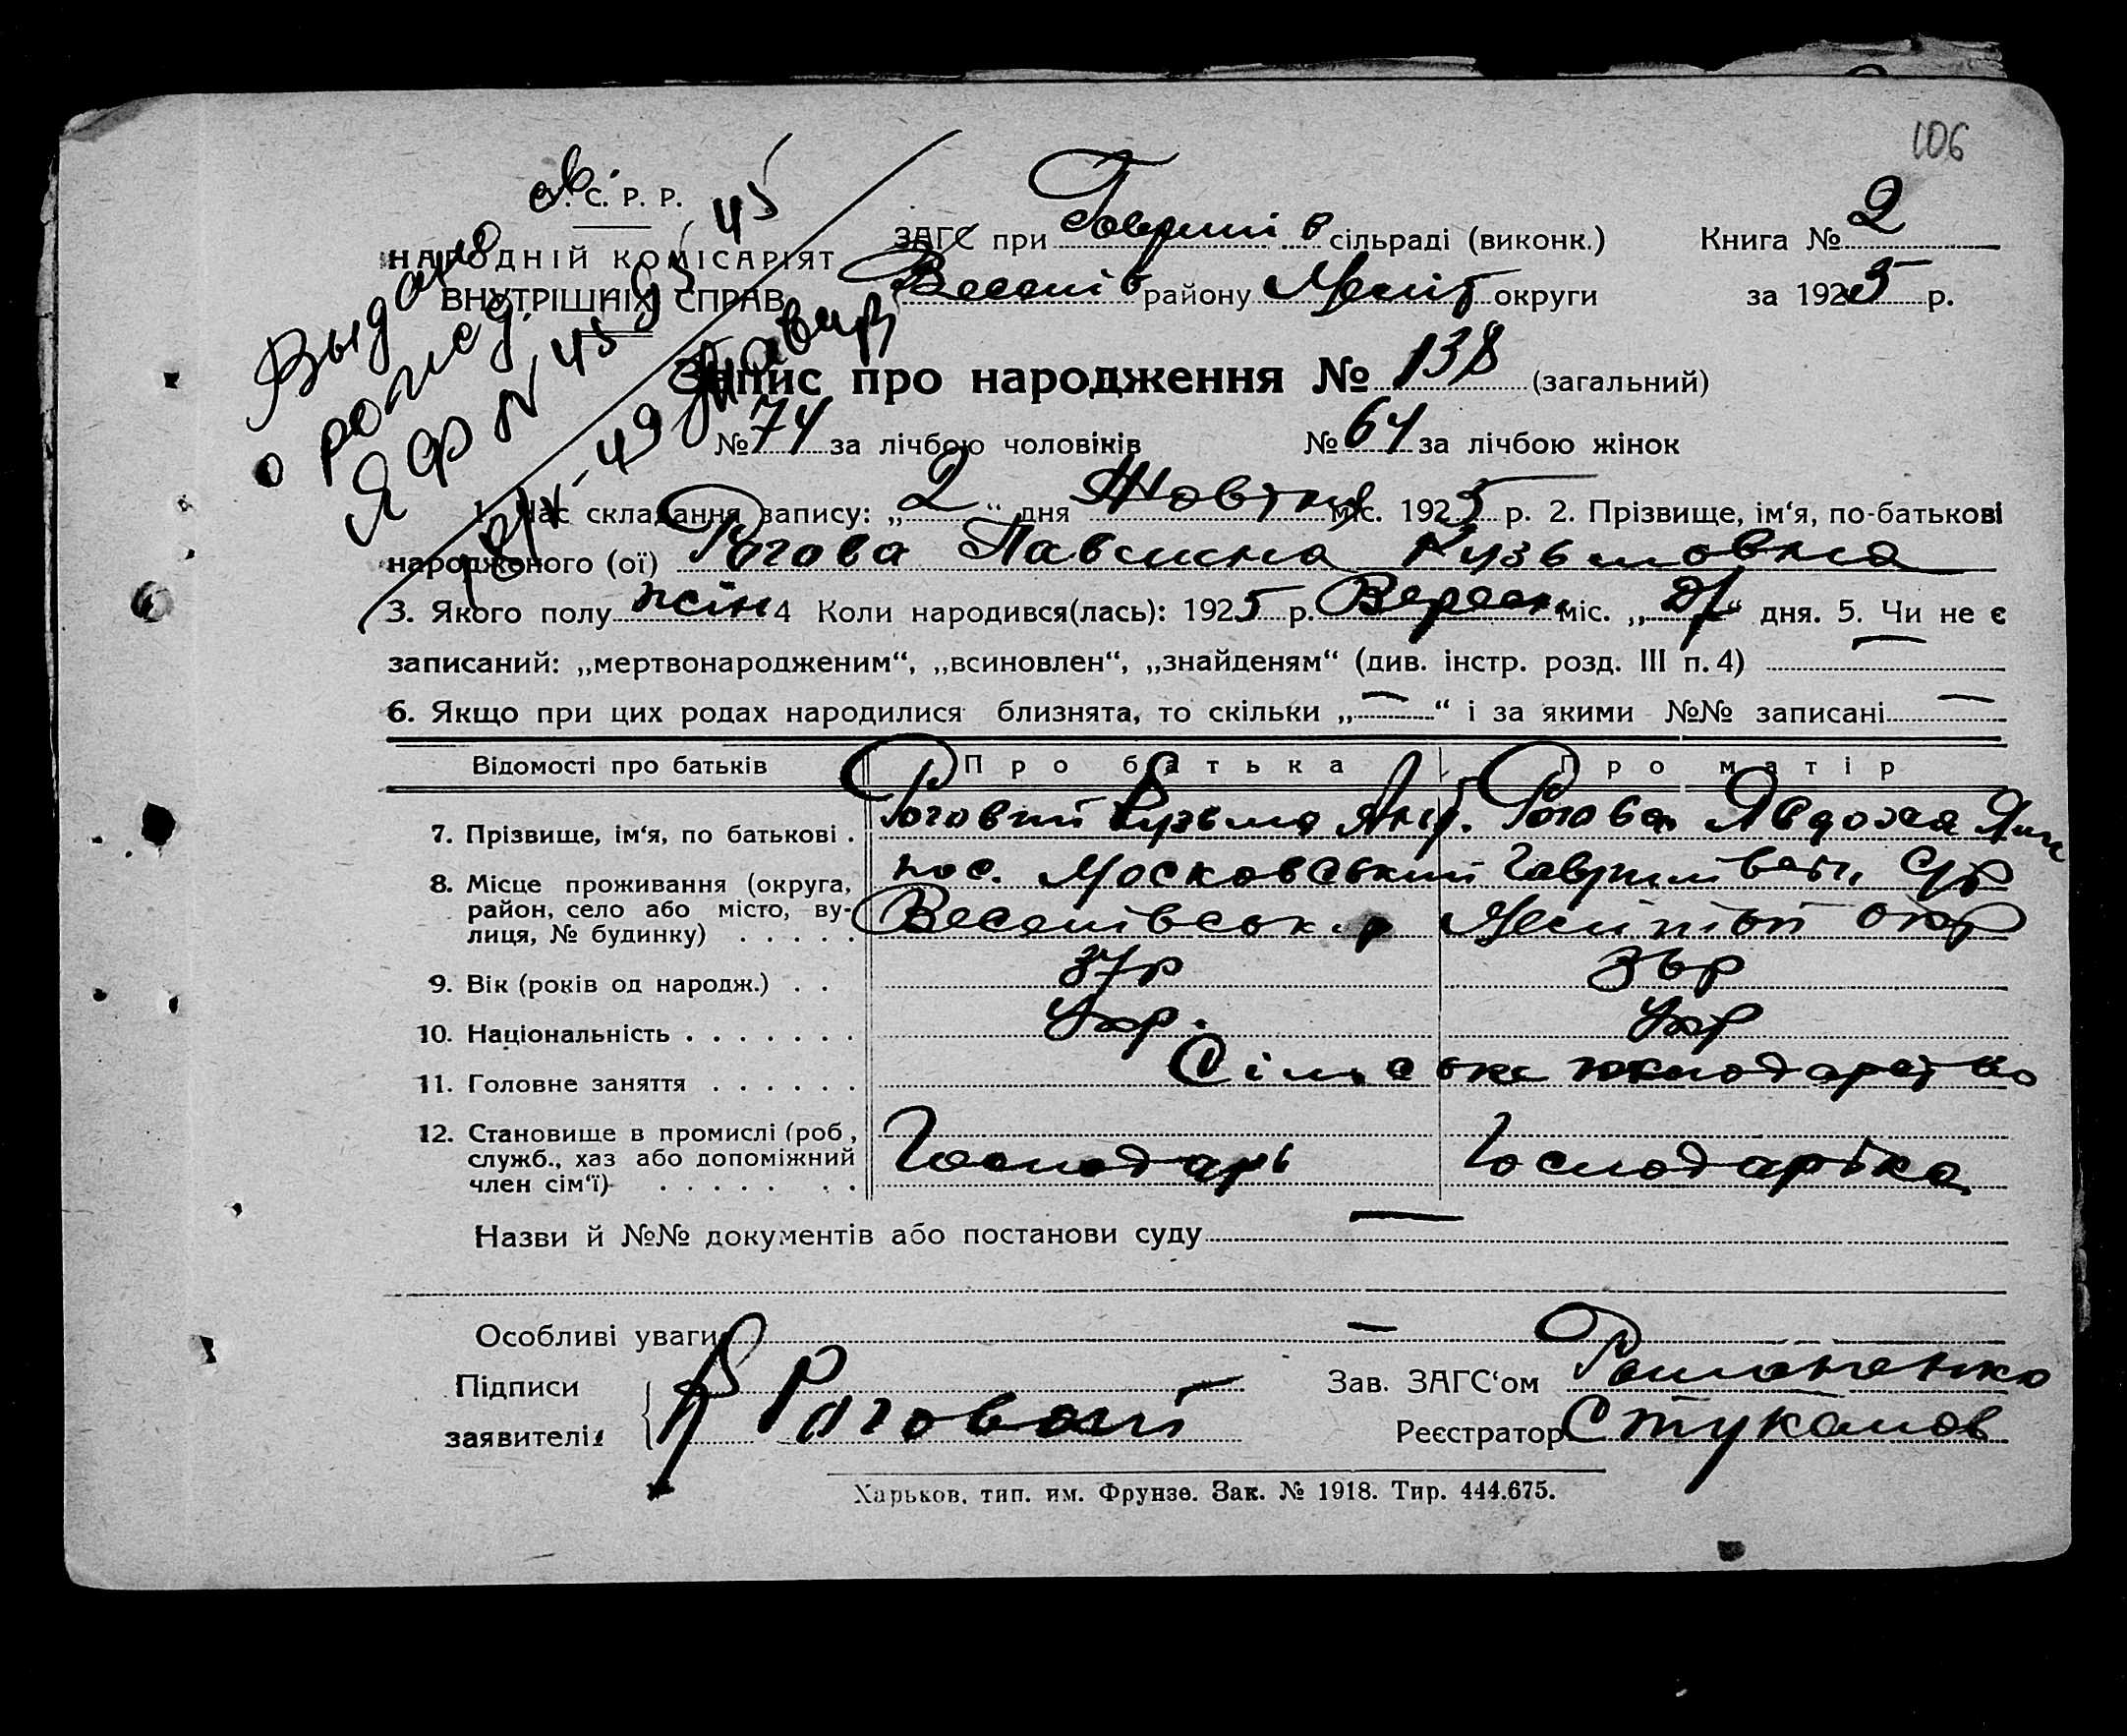 106
С. Р. Р.
НАРОДНІЙ КОМІСАРІЯТ
ВНУТРІШНІХ СПРАВ
Выдано
о рожд.
ЯФ N 45
ЗАГС при Гаврилів сільраді (виконк.) Книга № 2
Веселів району Меліт округи за 1925 р.
Запис про народження № 138 (загальний)
№ 74 за лічбою чоловіків № 64 за лічбою жінок
1. Час складання запису: „2“ дня Жовтня міс. 1925 р. 2. Прізвище, ім‘я, по-батькові
народженого (ої) Рогова Павлина Кузьмовна
3. Якого полу жін 4 Коли народився(лась): 1925 р. Вересн міс. „ “ дня. 5. Чи не є
записаний: „мертвонародженим“, „всиновлен“, „знайденям“ (див. інстр. розд. III п. 4) —
6. Якщо при цих родах народилися близнята, то скільки „—“ і за якими №№ записані —
Відомості про батьків Про батька Про матір
7. Прізвище, ім‘я, по батькові . Роговий Кузьма Рогова Явдоха
8. Місце проживання (округа, район, село або місто, вулиця, № будинку) . . . . . пос. Московський Гаврилівськ С/р
Веселівськ. р Мелітоп окр
9. Вік (років од народж.) . . 37р 36р
10. Національність . . . . . . . Укр. Укр
11. Головне заняття . . . . . . Сільське господарство
12. Становище в промислі (роб, служб., хаз або допоміжний член сім‘ї) . . . . . . . Господарь Господарька
Назви й №№ документів або постанови суду —
Особливі уваги —
Підписи заявителів К Роговой
Зав. ЗАГС‘ом Романенко
Реєстратор Стукалов
Харьков, тип. им. Фрунзе. Зак. № 1918. Тир. 444.675.